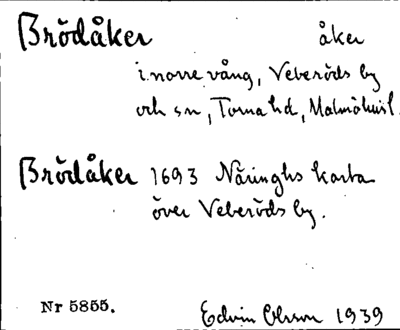 Brödåker åker
i norre vång, Veberöds by
och sn, Torna hd, Malmöhus l.
Brödåker 1693 Näringhs karta
över Veberöds by.
Nr 5855. Edvin Ohlsson 1939